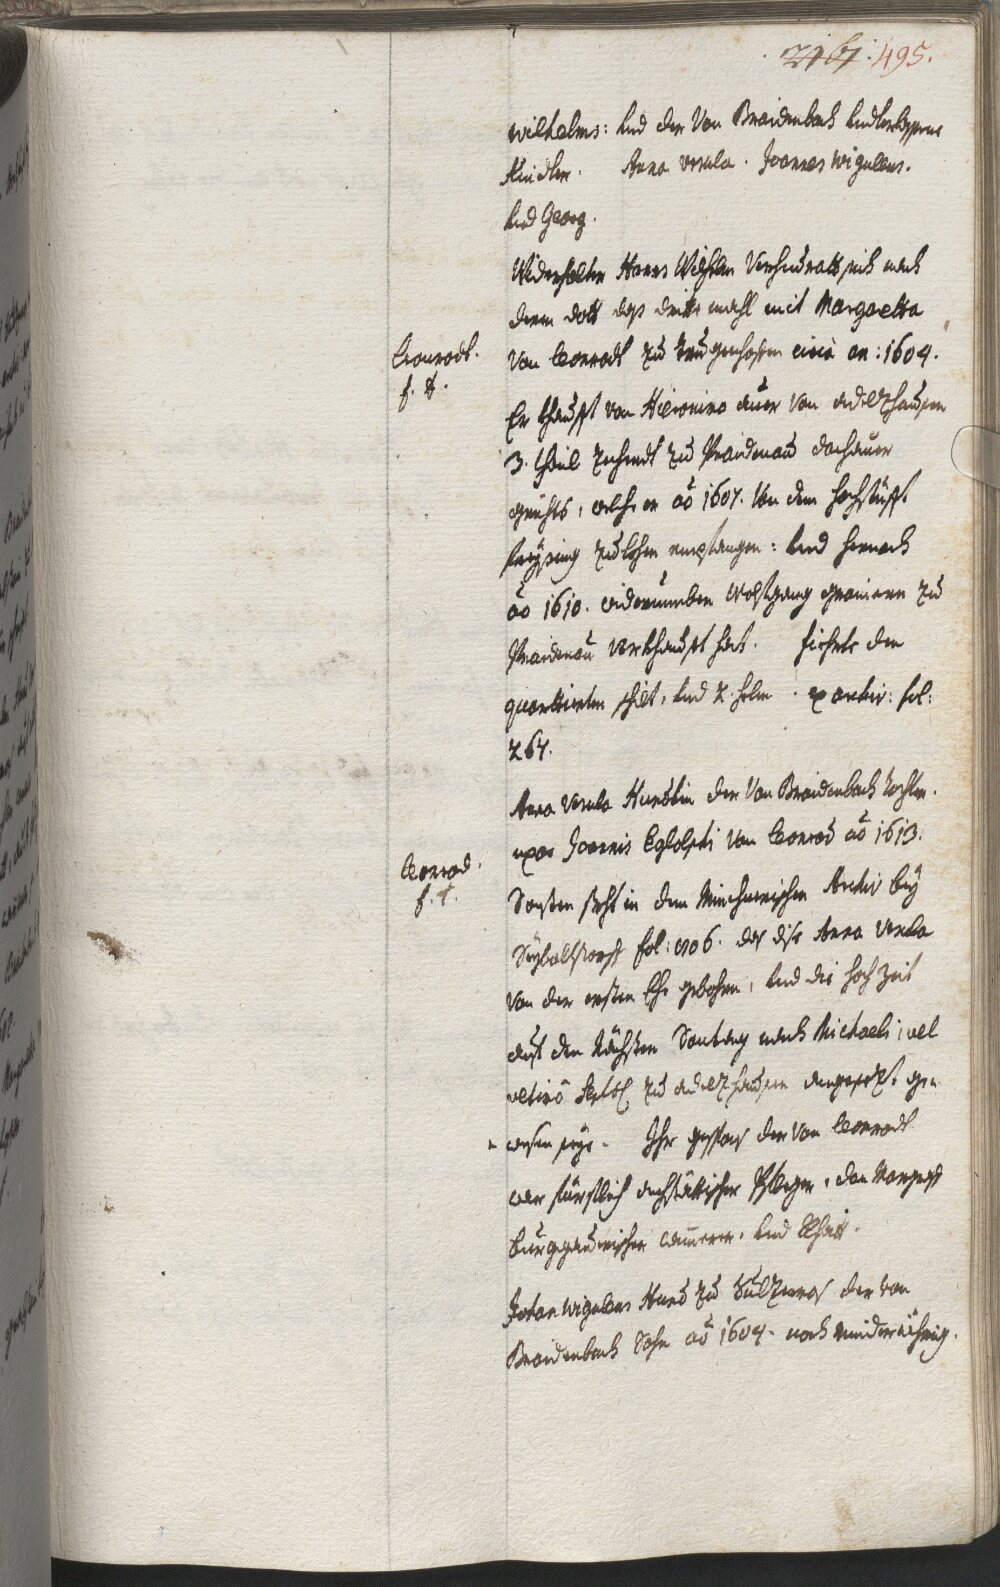 2161. 495.
wilhelms: und der Von Braidenbach hinderlassene
Kinder. Anna Vrsula. Joannes Wiguleus.
und Georg.
Widerholter Hanns Wilhelm Verheurath sich nach
deren Todt das dritte mahl mit Margaretta
Leonrodt.
f. A.
Von Leonrodt zu circa an: 1604.
Er khaufft von Hieronimo auer Von odelzhausen
3. theil Zechendt zu Praidenau dachauer
gerichts, welche er ao 1607. Von dem hochstüfft
freysing zu lehen empfangen: und hernach
ao 1610. widerumben Wolfgang zu
Praidenau Verkhaufft hat. fiehrte den
quartierten schilt, und 2. helm. ex archiv: fol:
267.
Anna Vrsula Hundtin der Von Braidenbach Tochter.
uxor Joannis Eglolphi Von Leonrod ao 1613.
Leonrod.
f. A.
Sonsten steht in dem Münchnerischen Archiv bey
Seyboltstorff fol: 1106. das dise Anna Vrsula
Von der ersten Ehe gebohren, und die hochzeit
auf den Nächsten Sontag nach Michaeli, vel
ultimo Septbr zu odelzhausen angesezt ge-
wesen seye. Ihr gespons der Von Leonrodt
war fürstlich aychstättischer Pfleger, dan Margraff
burggauischer camerer, und Rhat.
Johan Wiguleus Hund zu Sulzemos der Von
Braidenbach Sohn ao 1604. noch minderiährig.